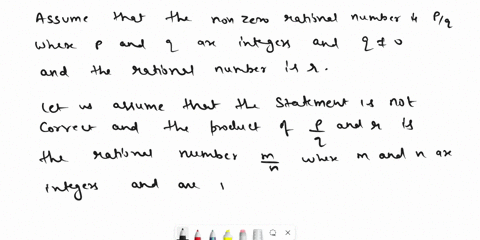 Assume that the non zero rational number is P/q
where p and q are integers and q ≠ 0
and the rational number is r.
Let us assume that the statement is not
correct and the product of p/q and r is
the rational number m/n where m and n are
integers and are